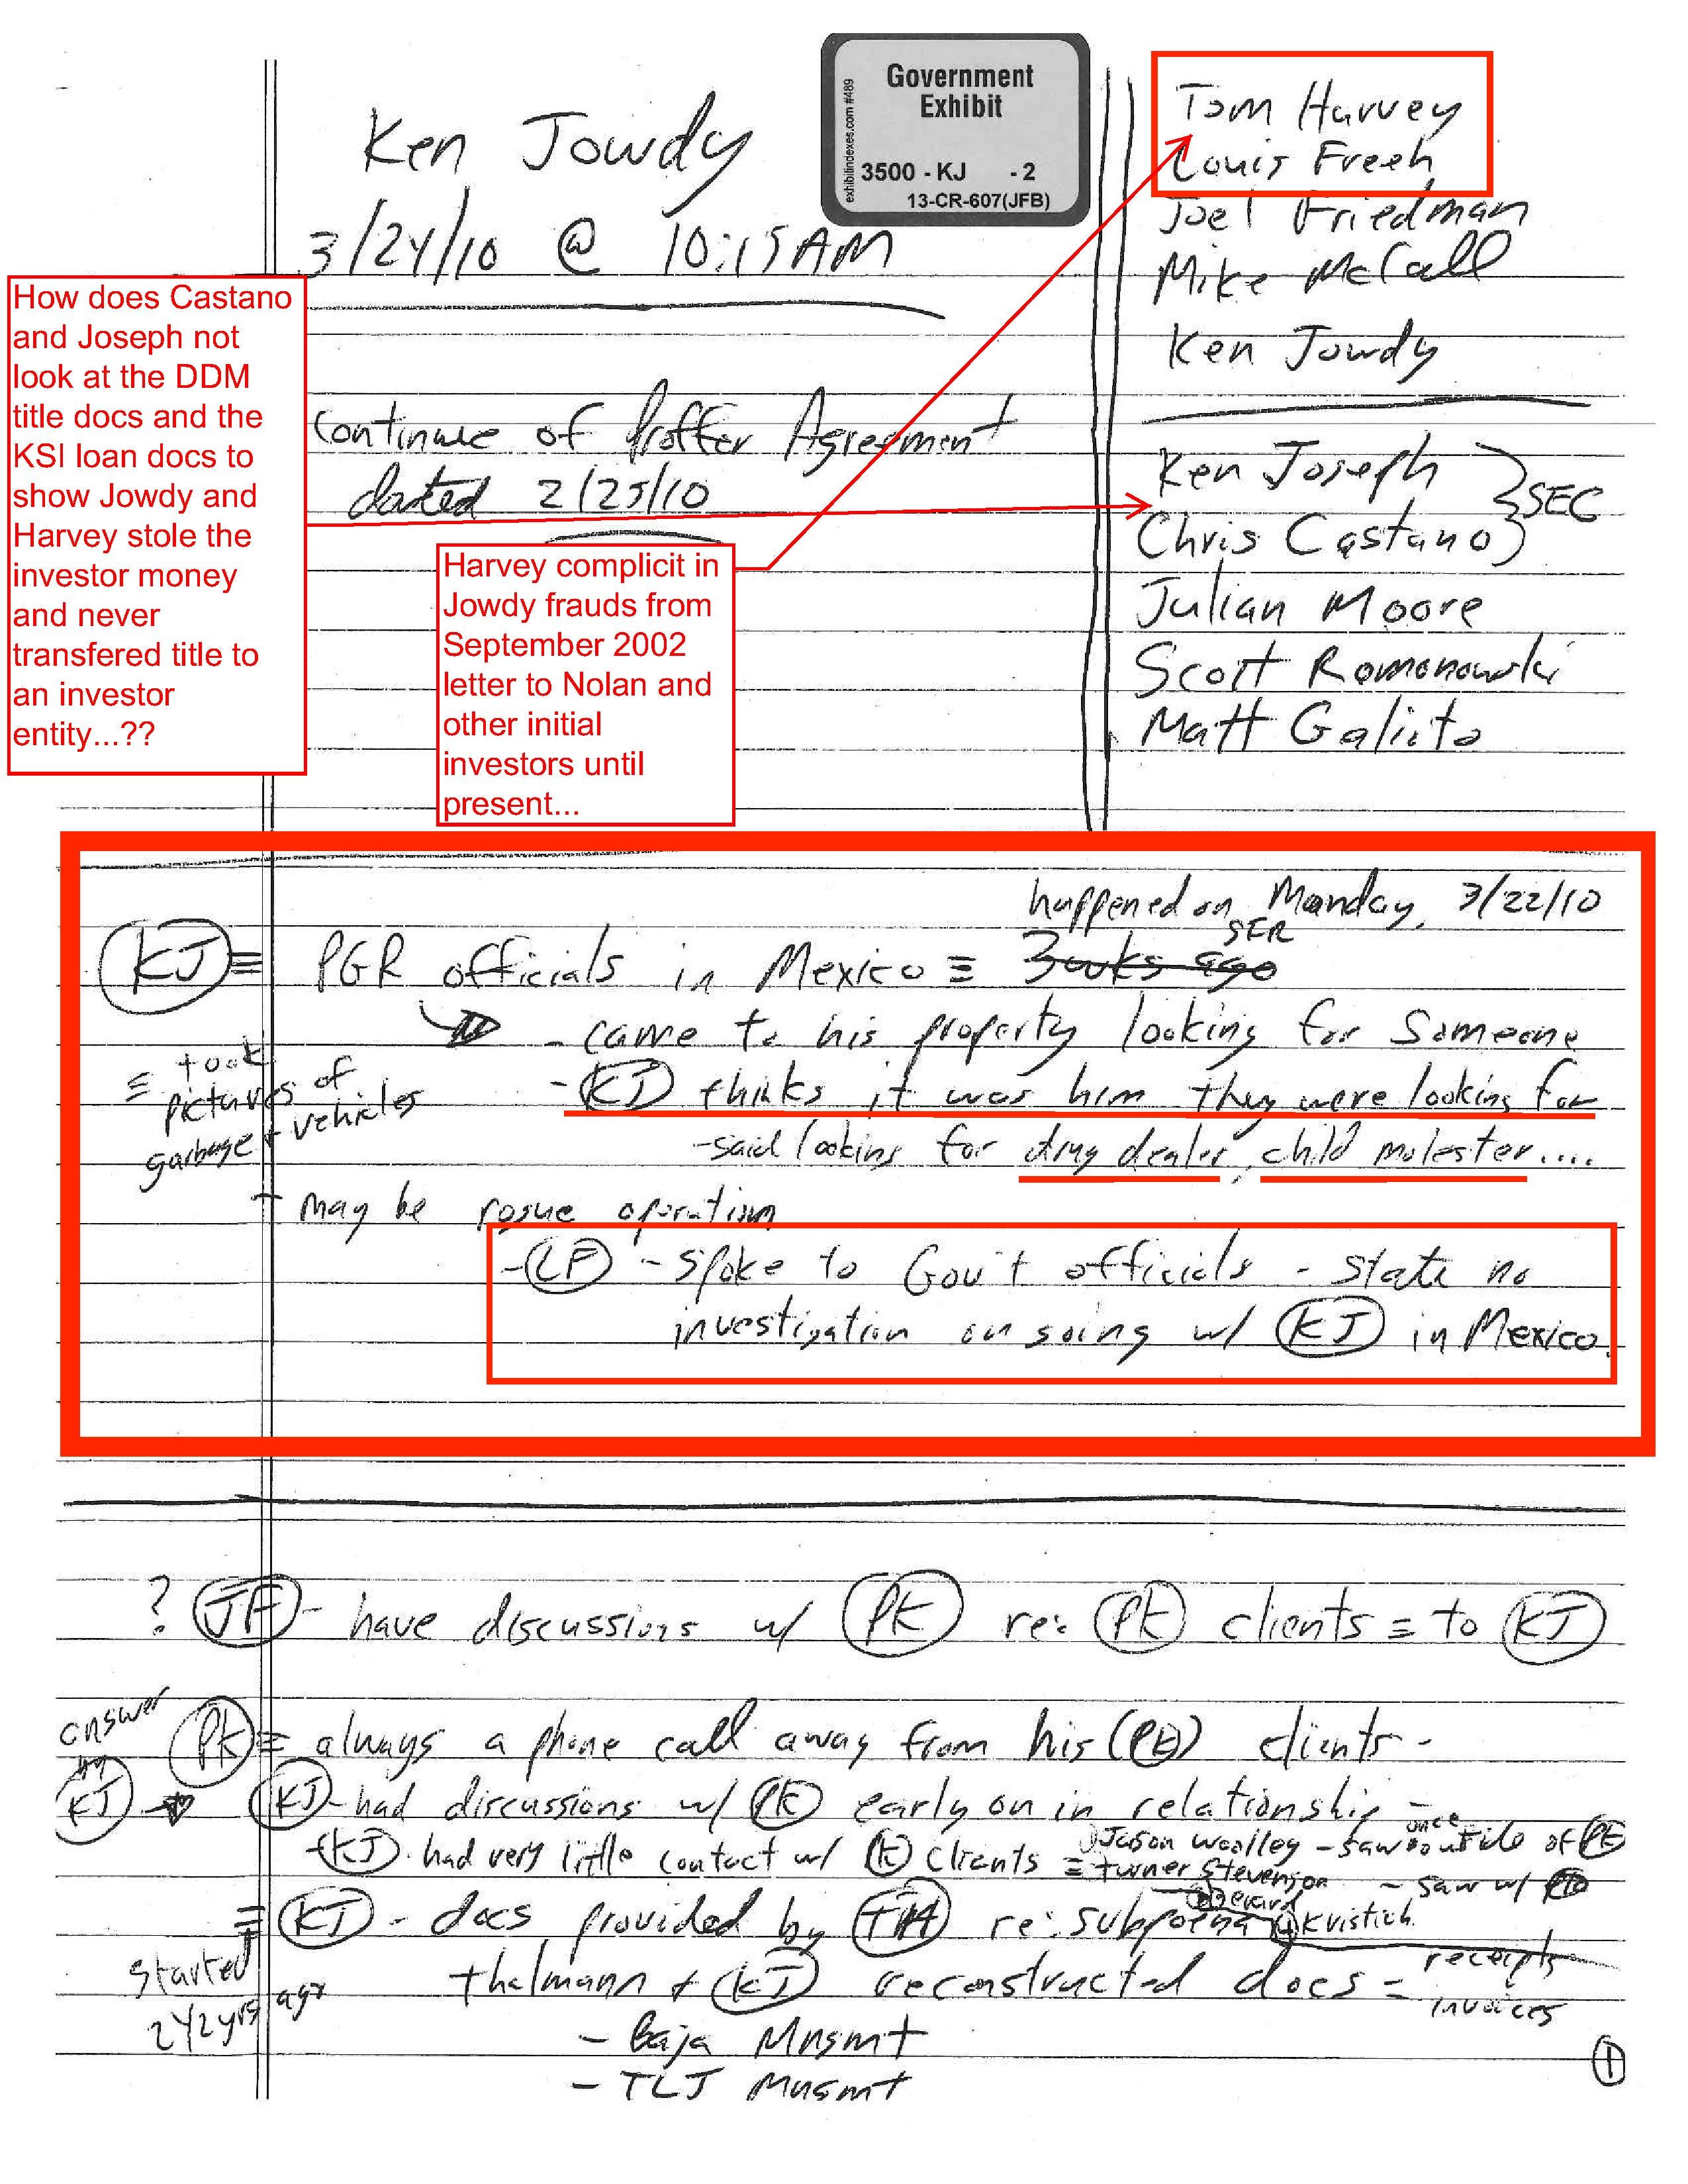 Government
Exhibit
3500 - KJ - 2
13-CR-607(JFB)
exhibitindexes.com #489
Ken Jowdy
3/24/10 @ 10:15AM
Continue of Proffer Agreement
dated 2/25/10
Tom Harvey
Louis Freeh
Joel Friedman
Mike McCall
Ken Jowdy
Ken Joseph
Chris Castano } SEC
Julian Moore
Scott Romonowski
Matt Galioto
How does Castano
and Joseph not
look at the DDM
title docs and the
KSI loan docs to
show Jowdy and
Harvey stole the
investor money
and never
transfered title to
an investor
entity...??
Harvey complicit in
Jowdy frauds from
September 2002
letter to Nolan and
other initial
investors until
present...
happened on Monday, 3/22/10
SER
KJ ≡ PGR officials in Mexico ≡ 3 wks ago
- came to his property looking for someone
- KJ thinks it was him they were looking for
- said looking for drug dealer, child molester....
≡ took
pictures of
garbage + vehicles
- may be rogue operation
- LF - spoke to Gov't officials - state no
investigation ongoing w/ KJ in Mexico.
? JF - have discussions w/ PK re: PK clients ≡ to KJ
answer
by
KJ →
PK ≡ always a phone call away from his (PK) clients -
KJ - had discussions w/ PK early on in relationship -
- KJ had very little contact w/ PK clients ≡ Jason Woolley - saw once outside of PK
turner Stevenson - saw w/ PK
Kristich
≡ KJ - docs provided by TH re: subpoena
started
2 1/2 yrs ago
thalmann + KJ reconstructed docs = receipts
invoices
- Baja Mngmt
- TLJ Mngmt
1